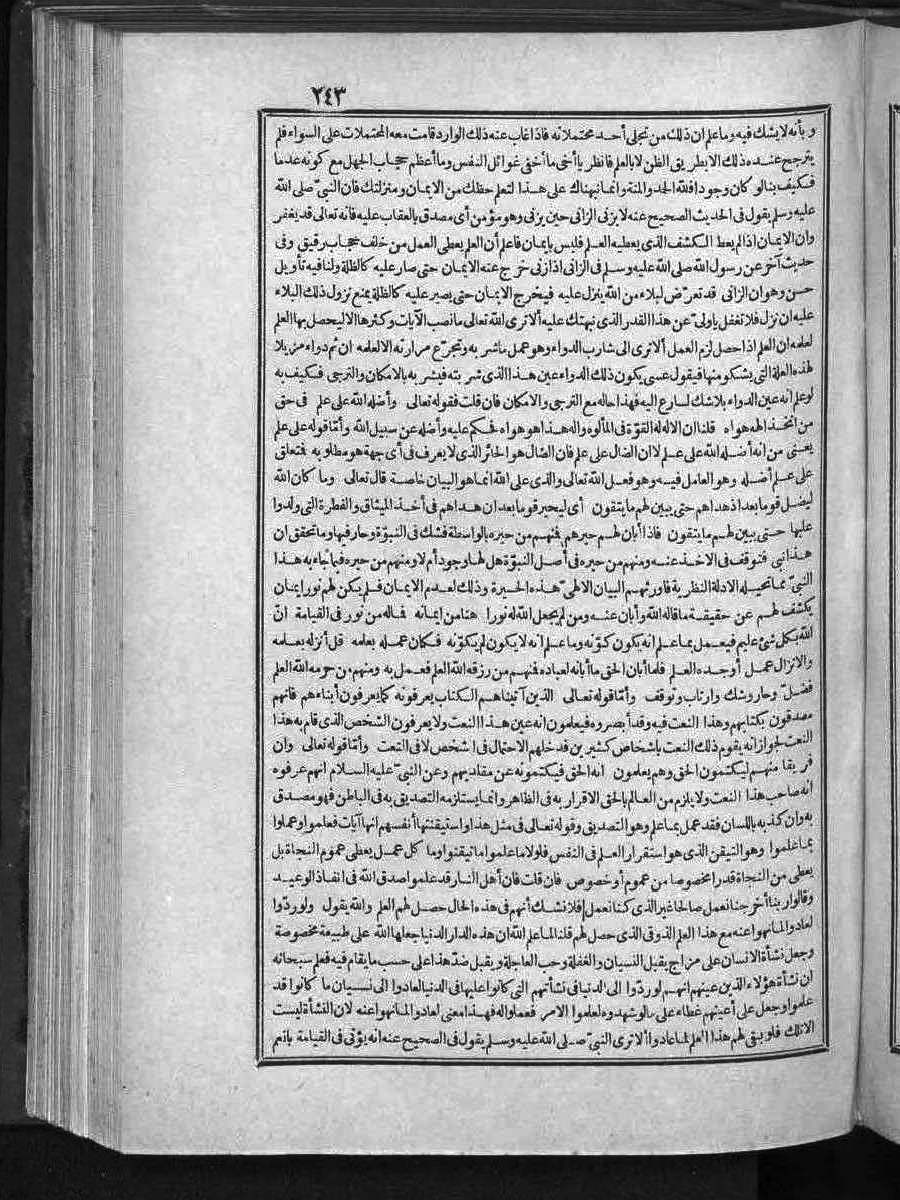 ٢٤٣
و بأنه لا يشك فيه وما علم ان ذلك من تجلى أحد محتملاته فاذا غاب عنه ذلك الوارد قامت معه المحتملات على السواء فلم
يترجح عنده ذلك الا بطريق الظن لا بالعلم فانظر يا أخى ما أخفى غوائل النفس وما أعظم حجاب الجهل مع كونه عدما
فكيف بنا لو كان وجودا فلله الحمد والمنة وانما نبهناك على هذا لتعلم حظك من الايمان ومنزلتك فان النبى صلى الله
عليه وسلم يقول فى الحديث الصحيح عنه لا يزنى الزانى حين يزنى وهو مؤمن أى مصدق بالعقاب عليه فانه تعالى قد يغفر
وان الايمان اذا لم يعط الكشف الذى يعطيه العلم فليس بايمان فاعلم أن العلم يعطى العمل من خلف حجاب رقيق وفى
حديث آخر عن رسول الله صلى الله عليه وسلم فى الزانى اذا زنى خرج عنه الايمان حتى صار عليه كالظلة ولنا فيه تأويل
حسن وهو ان الزانى قد تعرّض لبلاء من الله ينزل عليه فيخرج الايمان حتى يصير عليه كالظلة يمنع نزول ذلك البلاء
عليه ان نزل فلا تغفل ياولىّ عن هذا القدر الذى نبهتك عليه ألا ترى الله تعالى ما نصب الآيات وكثرها الا ليحصل بها العلم
لعلمه ان العلم اذا حصل لزم العمل ألا ترى الى شارب الدواء وهو عمل ماشربه وتجرّع مرارته الالعلمه ان ثم دواء مزيلا
لهذه العلة التى يشكو منها فيقول عسى يكون ذلك الدواء عين هذا الذى شربته فيشربه بالامكان والترجى فكيف به
لو علم انه عين الدواء بلاشك لسارع اليه فهذا حاله مع الترجى والامكان فان قلت فقوله تعالى وأضله الله على علم فى حق
من اتخذ الهه هواه قلنا ان الاله له القوّة فى المألوه واله هذا هو هواه فحكم عليه وأضله عن سبيل الله وأمّا قوله على علم
يعنى من انه أضله الله على علم لا ان الضال على علم فان الضال هو الحائر الذى لا يعرف فى أى جهة هو مطلوبه فتعلق
على علم أضله وهو العامل فيه وهو فعل الله تعالى والذى على الله انما هو البيان خاصة قال تعالى وما كان الله
ليضل قوما بعد اذ هداهم حتى يبين لهم ما يتقون أى ليحير قوما بعد ان هداهم فى أخذ الميثاق والفطرة التى ولدوا
عليها حتى يبين لهم ما يتقون فاذا أبان لهم حيرهم فمنهم من حيره بالواسطة فشك فى النبوّة وحار فيها وما تحقق ان
هذا نبى فتوقف فى الاخذ عنه ومنهم من حيره فى أصل النبوّة هل لها وجود أم لا ومنهم من حيره فيما جاء به هذا
النبىّ مما تحيله الادلة النظرية فاورثهم البيان الالهىّ هذه الحيرة وذلك لعدم الايمان فلم يكن لهم نور ايمان
يكشف لهم عن حقيقة ما قاله الله وأبان عنه ومن لم يجعل الله له نورا هنا من ايمانه فماله من نور فى القيامة انّ
الله بكل شئ عليم فيعمل بما علم انه يكون كوّنه وما علم انه لا يكون لم يكوّنه فكان عمله بعلمه قل أنزله بعلمه
والانزال عمل أوجده العلم فلما أبان الحق ما أبانه لعباده فمنهم من رزقه الله العلم فعمل به ومنهم من حرمه الله العلم
فضلّ وحار وشك وارتاب وتوقف وأمّا قوله تعالى الذين آتيناهم الكتاب يعرفونه كما يعرفون أبناءهم فانهم
مصدقون بكتابهم وهذا النعت فيه وقد أبصروه فيعلمون انه عين هذا النعت ولا يعرفون الشخص الذى قام به هذا
النعت لجواز انه يقوم ذلك النعت باشخاص كثيرين فدخلهم الاحتمال فى الشخص لا فى النعت وأمّا قوله تعالى وان
فريقا منهم ليكتمون الحق وهم يعلمون انه الحق فيكتمونه عن مقلديهم وعن النبىّ عليه السلام انهم عرفوه
أنه صاحب هذا النعت ولا يلزم من العالم بالحق الاقرار به فى الظاهر وانما يستلزمه التصديق به فى الباطن فهو مصدق
به وان كذبه باللسان فقد عمل بما علم وهو التصديق وقوله تعالى فى مثل هذا واستيقنتها أنفسهم انها آيات فعلموا وعملوا
بما علموا وهو التيقن الذى هو استقرار العلم فى النفس فلولا ما علموا ما تيقنوا وما كل عمل يعطى عموم النجاة بل
يعطى من النجاة قدرا مخصوصا من عموم أو خصوص فان قلت فان أهل النار قد علموا صدق الله فى انفاذ الوعيد
وقالوا ربنا أخرجنا نعمل صالحا غير الذى كنا نعمل فلا نشك أنهم فى هذه الحال حصل لهم العلم والله يقول ولو ردّوا
لعادوا لما نهوا عنه مع هذا العلم الذوقى الذى حصل لهم قلنا لما علم الله ان هذه الدار الدنيا جعلها الله على طبيعة مخصوصة
وجعل نشأة الانسان على مزاج يقبل النسيان والغفلة وحب العاجلة ويقبل ضدّ هذا على حسب ما يقام فيه فعلم سبحانه
ان نشأة هؤلاء الذين عينهم انهم لو ردّوا الى الدنيا فى نشأتهم التى كانوا عليها فى الدنيا لعادوا الى نسيان ما كانوا قد
علموا وجعل على أعينهم غطاء على ما لو شهدوه لعلموا الامر فعملوا له فهذا معنى لعادوا لما نهوا عنه لان النشأة ليست
الا تلك فلو بقى لهم هذا العلم لما عادوا ألا ترى النبىّ صلى الله عليه وسلم يقول فى الصحيح عنه انه يؤتى فى القيامة بانعم